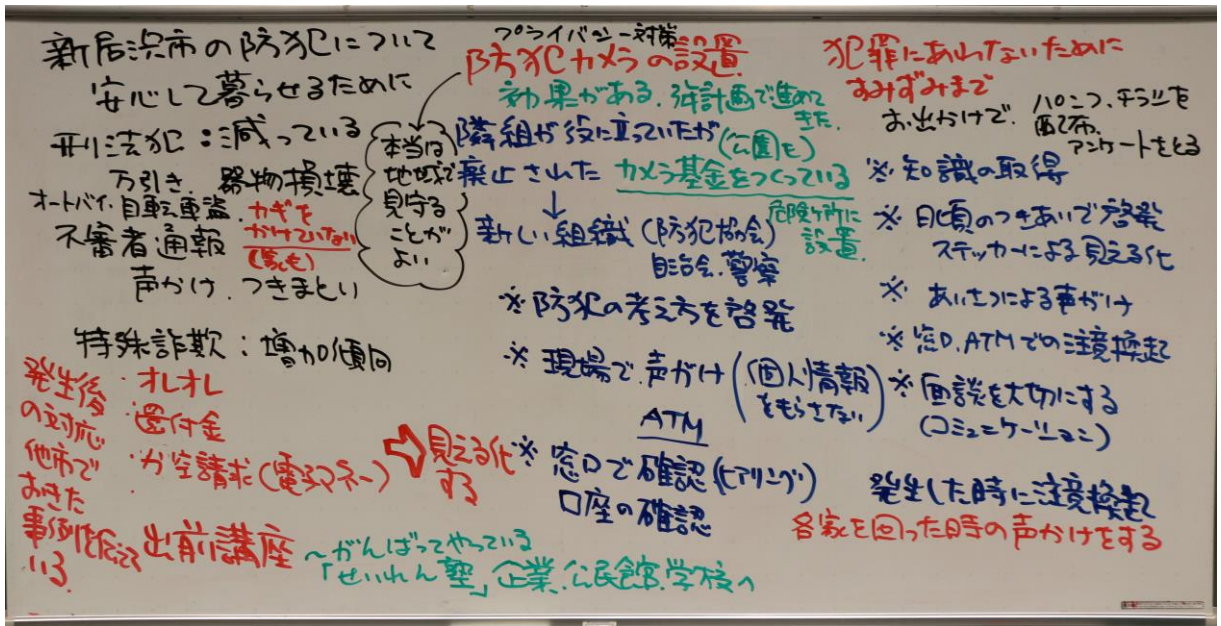 新居浜市の防犯について
安心して暮らせるために
刑法犯：減っている
万引き、器物損壊
オートバイ・自転車盗、カギを
かけていない
(家も)
不審者通報
声かけ、つきまとい
特殊詐欺：増加傾向
・オレオレ
・還付金
・カ空請求(電マネー)
発生後
の対応
他市で
おきた
事例伝えて
いる
見える化
する
出前講座
～がんばってやっている
「せいれん塾」企業、公民館、学校へ
プライバシー対策
防犯カメラの設置
効果がある、
計画で進めて
きた
本当は
地域で
見守る
ことが
よい
隣組が役に立っていたが
(公園も)
廃止された
カメラ基金をつくっている
危険ヶ所に
設置
新しい組織(防犯協会)
自治会、警察
※防犯の考え方を啓発
※現場で声がけ(個人情報
をもらさない)
ATM
※窓口で確認(ヒアリング)
口座の確認
犯罪にあわないために
すみずみまで
お出かけで、
パンフ、チラシを
配布、
アンケートをとる
※知識の取得
※日頃のつきあいで啓発
ステッカーによる見える化
※あいさつによる声がけ
※窓口、ATMでの注意換起
※面談を大切にする
(コミュニケーション)
発生した時に注意換起
各家を回った時の声かけをする